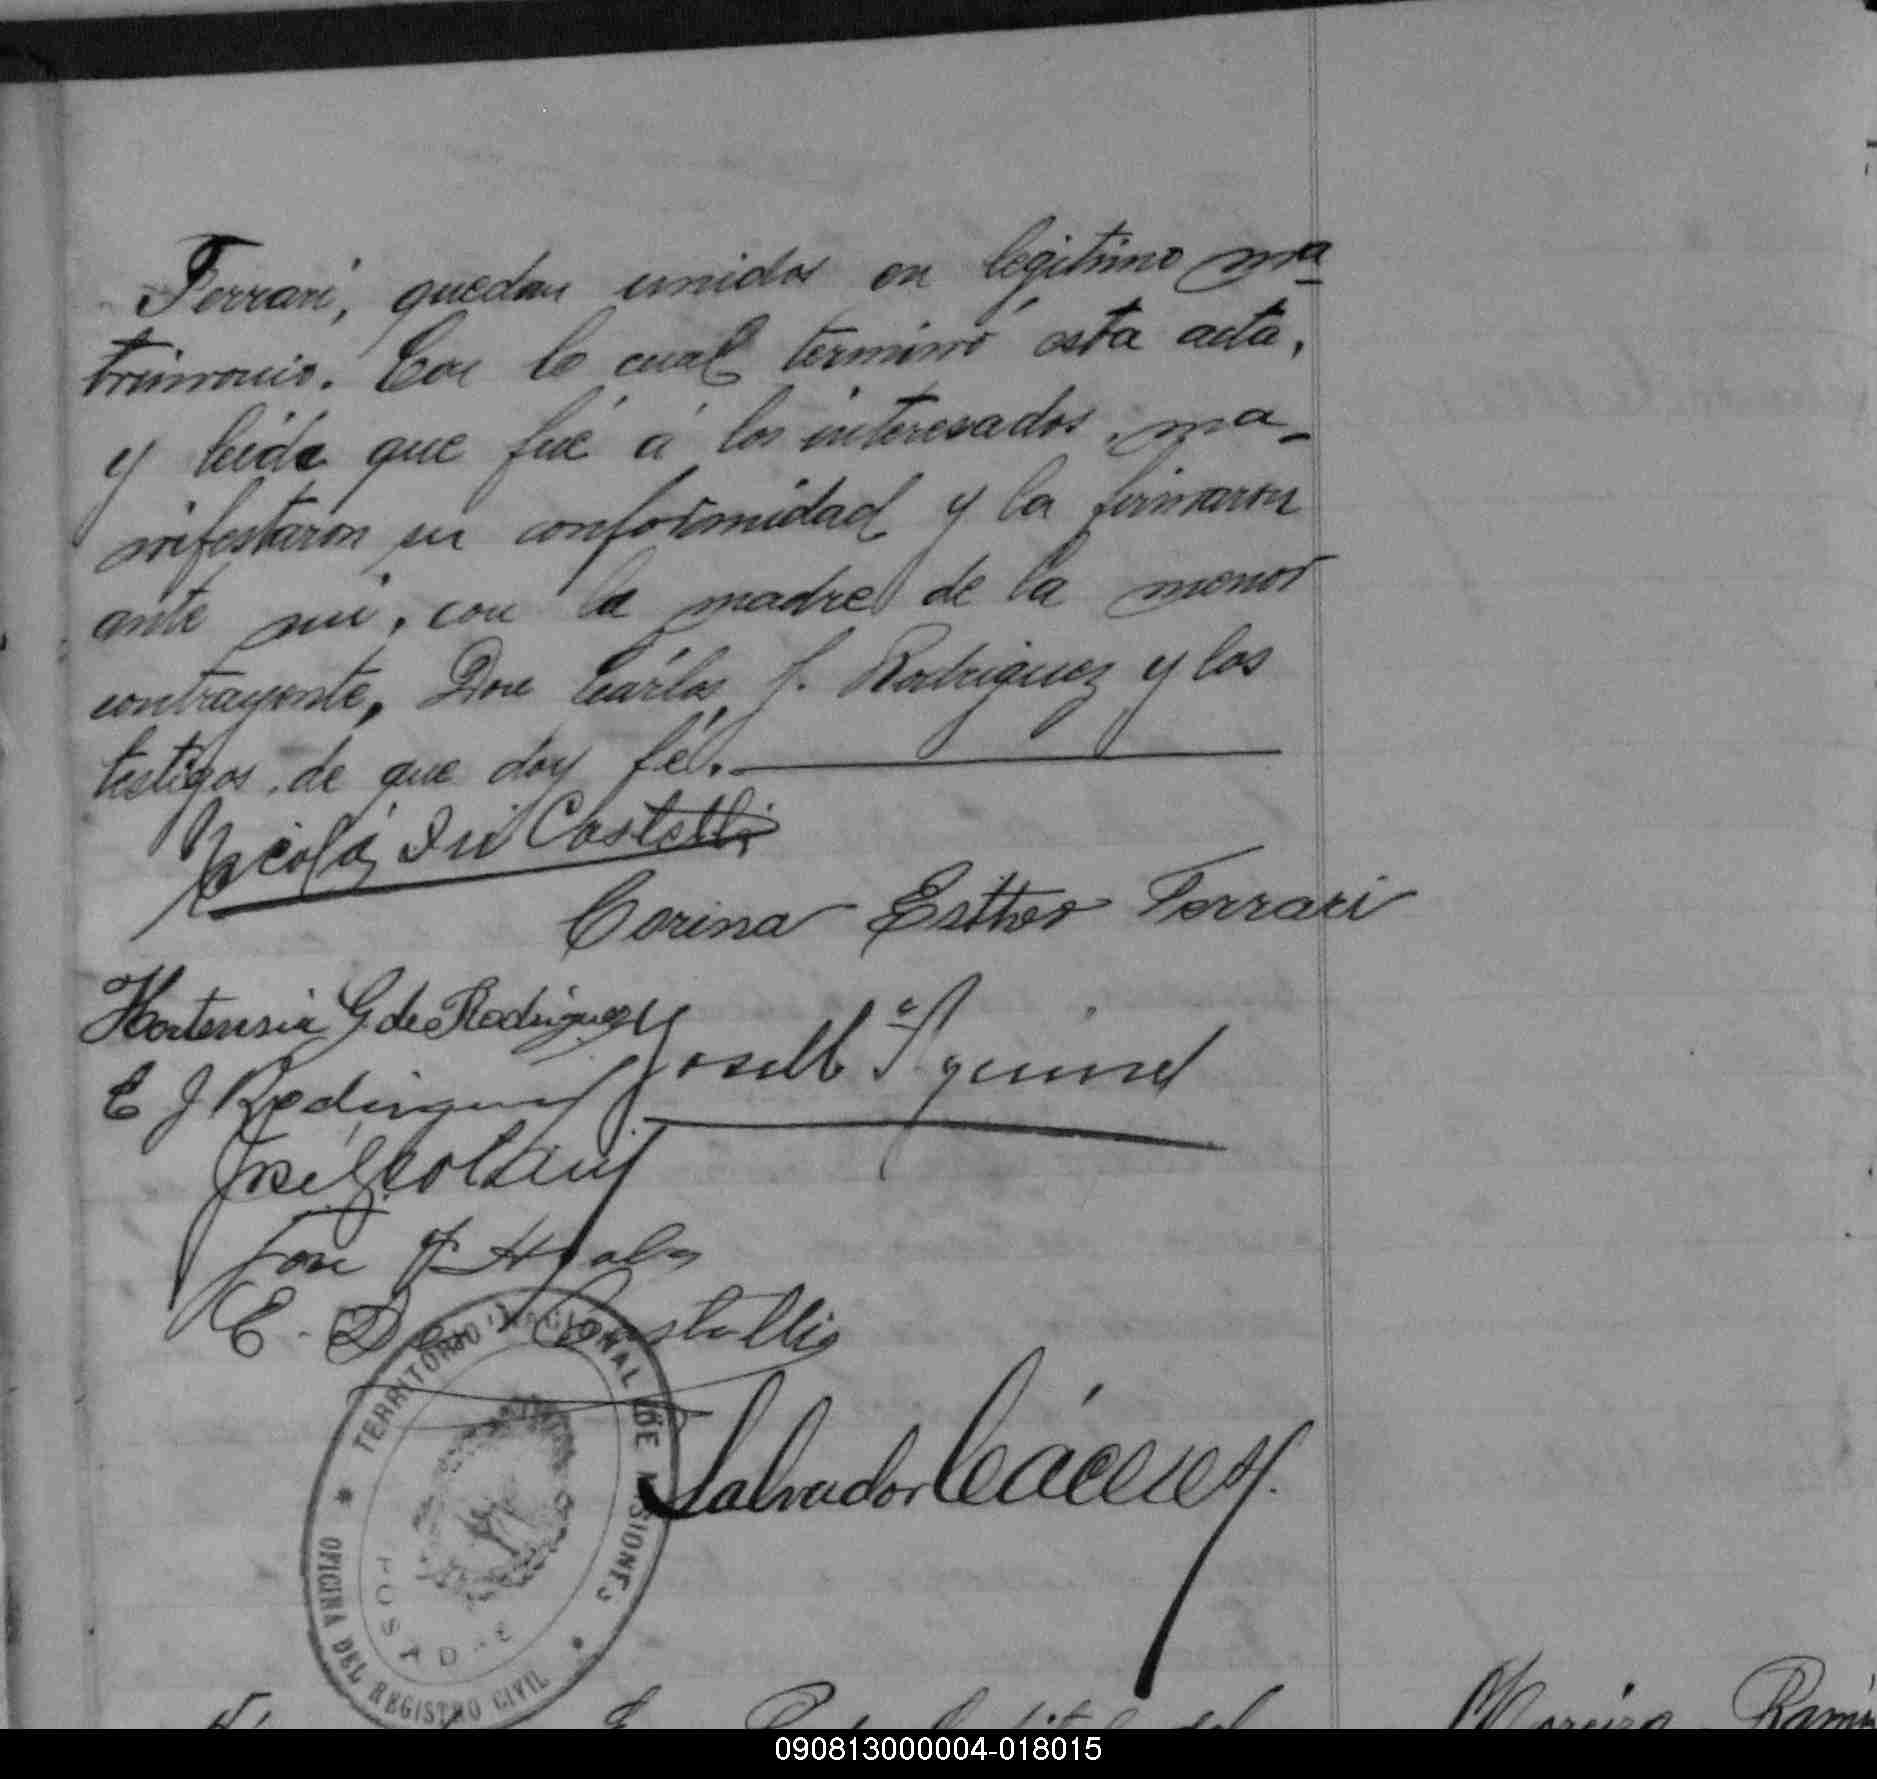 Ferrari, quedan unidos en legítimo ma-
trimonio. Con lo cual terminó esta acta,
y leída que fué á los interesados, ma-
nifestaron su conformidad y la firmaron
ante mi, con la madre de la menor
contrayente, Don Cárlos J. Rodriguez y los
testigos, de que doy fé.
Nicolás Di Costelli
Corina Esther Ferrari
Hortensia G. de Rodriguez
E J Rodriguez
José
José
E. Di
TERRITORIO NACIONAL DE MISIONES
Salvador Cáceres
POSADAS
OFICINA DEL REGISTRO CIVIL
Moreira Ramón
090813000004-018015